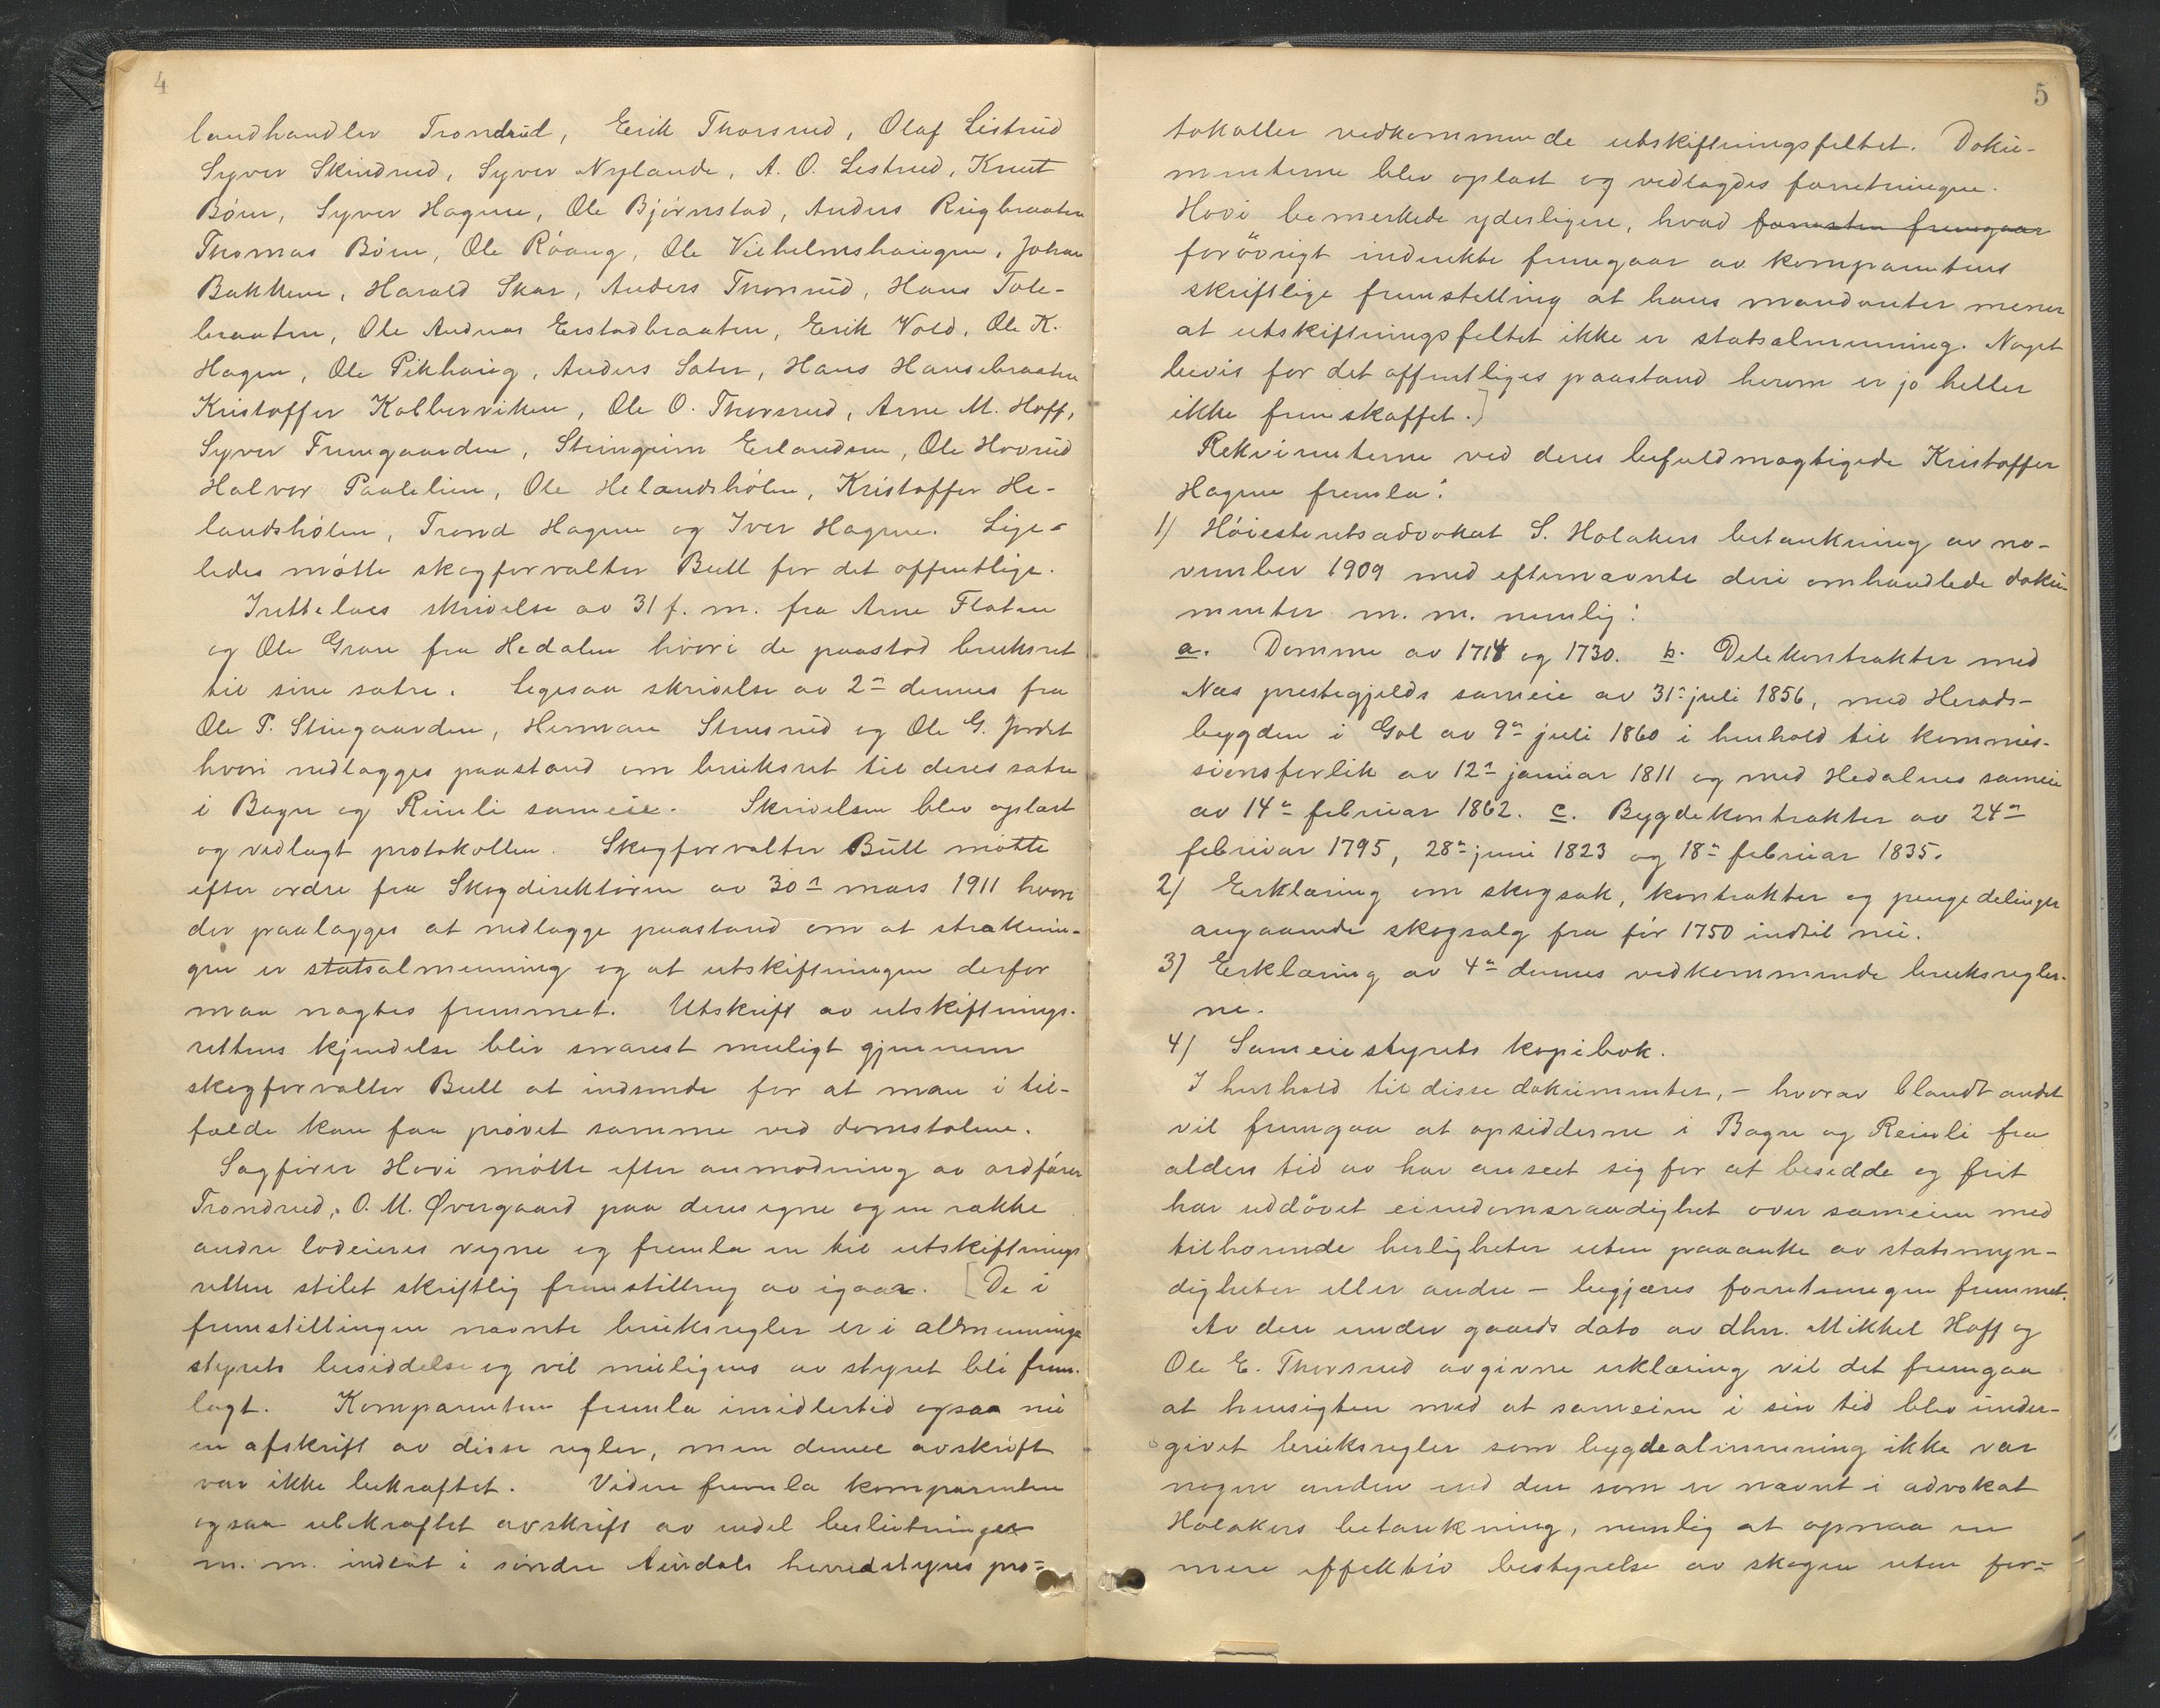 4
landhandler Trondrud, Erik Thorsrud, Olaf Listrud
Syver Skindrud, Syver Nylande, A. O. Lestrud, Knut
Börn, Syver Hagene, Ole Björnstad, Anders Rugbraaten
Thomas Börn, Ole Röang, Ole Vilhelmshaugen, Johan
Bakkene, Harald Skar, Anders Thonrud, Hans Tole-
braaten, Ole Andreas Erstadbraaten, Erik Vold, Ole K.
Hagen, Ole Pikhaug, Anders Sæter, Hans Hansebraaten
Kristoffer Kolberviken, Ole O. Thorsrud, Arne M. Hoff,
Syver Fremgaarden, Steingrim Erlandsen, Ole Hovrud
Halvor Paalelien, Ole Helandshölen, Kristoffer He-
landshölen, Trond Hagene og Iver Hagene. Lige-
ledes mötte skogforvalter Bull for det offentlige.
Irettelaes skrivelse av 31 f. m. fra Arne Flaten
og Ole Grav fra Hedalen hvori de paastod bruksret
til sine sætre. Legesaa skrivelse av 2n dennes fra
Ole P. Stuegaarden, Herman Stensrud og Ole G. Jordet
hvori nedlægges paastand om bruksret til deres sætre
i Bagn og Reinli sameie. Skrivelsen blev oplæst
og vedlagt protokollen. Skogforvalter Bull mötte
efter ordre fra Skogdirektören av 30n mars 1911 hvori
der paalægges at nedlægge paastand om at stræknin-
gen er statsalmenning og at utskiftningen derfor
maa nægtes fremmet. Utskrift av utskiftnings-
rettens kjendelse blir snarest muligt gjennem
skogforvalter Bull at indsende for at man i til-
fælde kan faa prövet samme ved domstolene.
Sagförer Hovi mötte efter anmodning av ordförer
Trondrud, O. M. Øvergaard paa deres egne og en række
andre lodeieres vegne og fremla en til utskiftnings
retten stilet skriftlig fremstilling av igaar. [De i
fremstillingen nævnte bruksregler er i almennings
styrets besiddelse og vil muligens av styret bli frem-
lagt. Komparenten fremla imidlertid ogsaa nu
en afskrift av disse regler, men denne avskrift
var ikke bekræftet. Videre fremla komparenten
ogsaa ubekræftet avskrift av endel beslutninger
m. m. indtat i söndre Aurdals herredstyres pro-
5
tokoller vedkommende utskiftningsfeltet. Doku-
menterne blev oplæst og vedlagdes forretningen.
Hovi bemerkede yderligere, hvad foruten fremgaar
forövrigt indirekte fremgaar av komparentens
skriftlige fremstilling at hans mandanter mener
at utskiftningsfeltet ikke er statsalmenning. Noget
bevis for det offentliges paastand herom er jo heller
ikke fremskaffet.]
Rekvirenterne ved deres befuldmægtigede Kristoffer
Hagene fremla:
1) Höiesteretsadvokat S. Holakers betænkning av no-
vember 1909 med efternævnte deri omhandlede doku-
menter m. m. nemlig:
a. Domme av 1714 og 1730. b. Delekontrakter med
Næs prestegjelds sameie av 31n juli 1856, med Herads-
bygden i Gol av 9n juli 1860 i henhold til kommis-
sionsforlik av 12n januar 1811 og med Hedalens sameie
av 14n februar 1862. c. Bygdekontrakter av 24n
februar 1795, 28n juni 1823 og 18n februar 1835.
2) Erklæring om skogsak, kontrakter og pengedelinger
angaaende skogsalg fra för 1750 indtil nu.
3) Erklæring av 4n dennes vedkommende bruksregler-
ne.
4) Sameiestyrets kopibok.
I henhold til disse dokumenter, – hvorav blandt andet
vil fremgaa at opsidderne i Bagn og Reinli fra
alders tid av har anseet sig for at besidde og frit
har uddövet eiendomsraadighet over sameiene med
tilhörende herligheter uten paaanke av statsmyn-
digheter eller andre – begjæres forretningen fremmet.
Av den under gaards dato av dhrr. Mikkel Hoff og
Ole E. Thorsrud avgivne erklæring vil det fremgaa
at hensigten med at sameiene i sin tid blev under-
givet bruksregler som bygdealmenning ikke var
nogen anden end den som er nævnt i advokat
Holakers betænkning, nemlig at opnaa en
mere effektiv bestyrelse av skogen uten for-